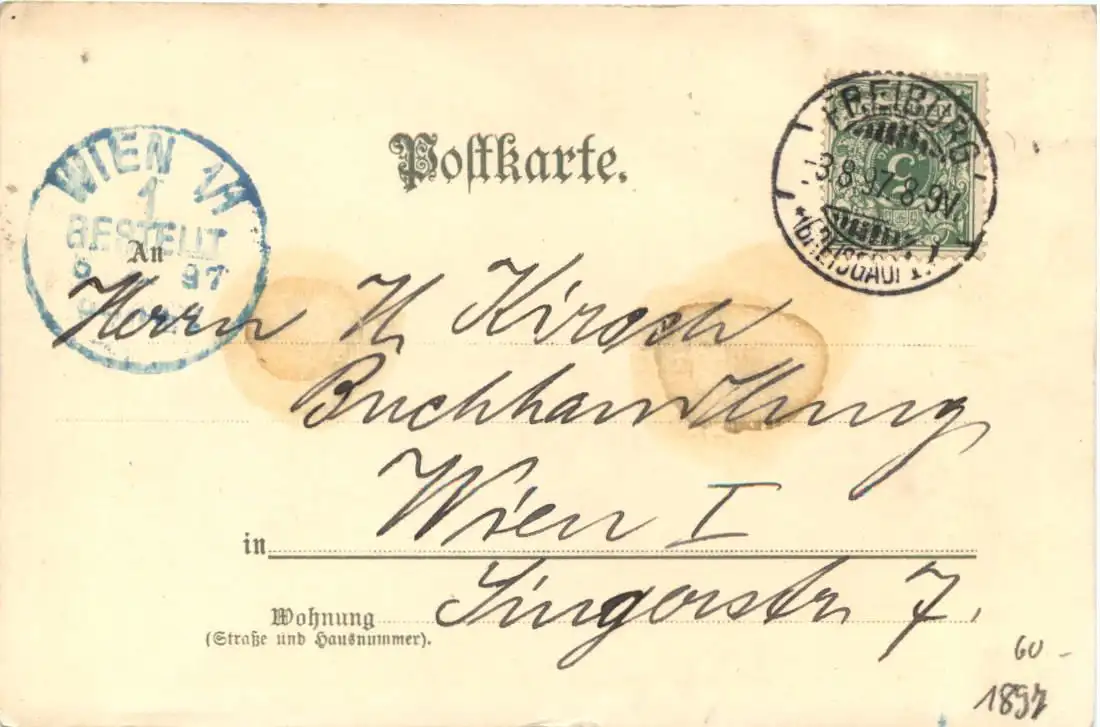 Postkarte.
FREIBURG
3.8.97.8-9V.
*(BREISGAU) 1.*
5
WIEN 1/1
1
BESTELLT
97
An
Herrn H. Kirsch
Buchhandlung
in Wien I
Wohnung Singerstr 7.
(Straße und Hausnummer).
60 -
1897